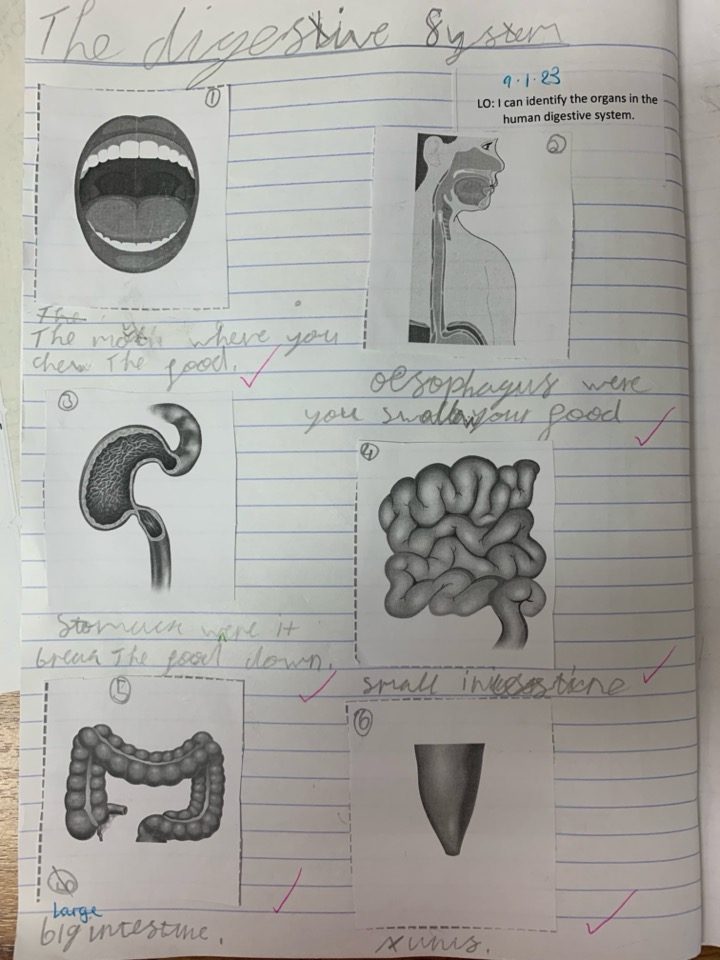 The digestive System
9.1.23
LO: I can identify the organs in the
human digestive system.
1
2
The
The where you
chew The food.
oesophagus were
you swallow your food
3
4
Stomach were it
break The food down.
small intestine
5
6
Large
big intestine.